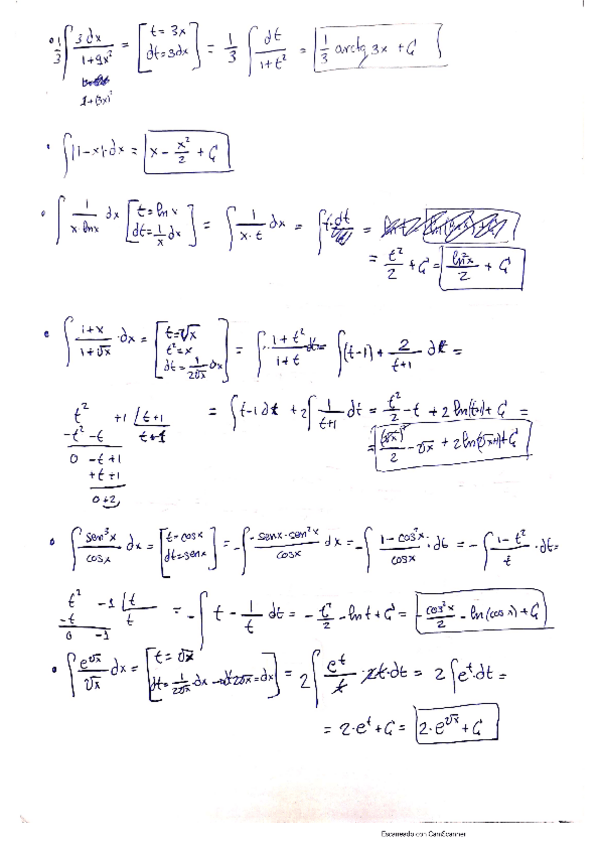 • 1/3 ∫ 3dx/(1+9x²) = [t = 3x, dt = 3dx] = 1/3 ∫ dt/(1+t²) = 1/3 arctg 3x + C
1+(3x)²
• ∫ |1-x|·dx = x - x²/2 + C
• ∫ 1/(x·lnx) dx [t = ln x, dt = 1/x dx] = ∫ 1/(x·t) dx = ∫ t·dt =
= t²/2 + C = ln²x/2 + C
• ∫ (1+x)/(1+√x) ·dx = [t = √x, t² = x, dt = 1/(2√x) dx] = ∫ (1+t²)/(1+t) dt = ∫ (t-1) + 2/(t+1) dt =
t² +1 | t+1
= ∫ t-1 dt + 2∫ 1/(t+1) dt = t²/2 - t + 2 ln(t+1) + C =
-t² -t
= (√x)²/2 - √x + 2 ln(√x+1) + C
0 -t +1
+t +1
0 +2
• ∫ sen³x/cosx dx = [t = cosx, dt = senx] = -∫ -senx·sen²x/cosx dx = -∫ (1-cos²x)/cosx ·dt = -∫ (1-t²)/t ·dt =
t² -1 | t
-t t
0 -1
= -∫ t - 1/t dt = - t²/2 - ln t + C = -cos²x/2 - ln(cos x) + C
• ∫ e^√x/√x dx = [t = √x, dt = 1/(2√x) dx → dt 2√x = dx] = 2∫ e^t/t · t·dt = 2∫ e^t·dt =
= 2·e^t + C = 2·e^√x + C
Escaneado con CamScanner